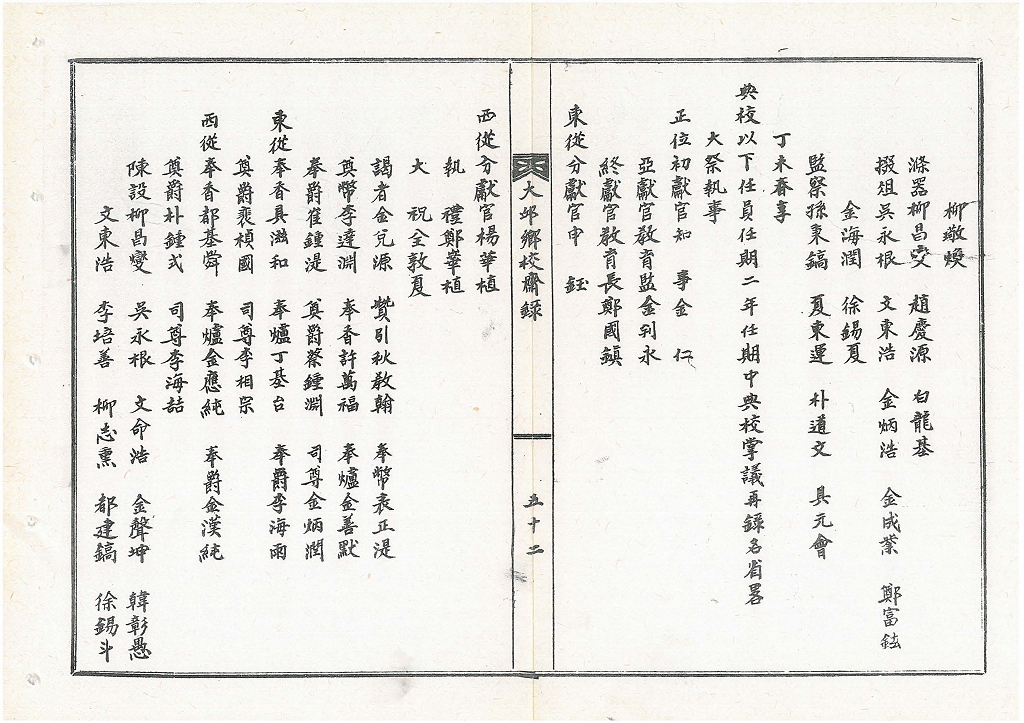 柳敬煥
滌器柳昌燮 趙慶源 白龍基
掇俎吳永根 文東浩 金炳浩 金成業 鄭富鉉
金海潤 徐錫夏
監察孫秉鎬 夏東運 朴道文 具元會
丁未春享
典校以下任員任期二年任期中典校掌議再錄名省畧
大祭執事
正位初獻官知事金仁
亞獻官敎育監金判永
終獻官敎育長鄭國鎭
東從分獻官申鈺
大邱鄕校齋錄
五十二
西從分獻官楊華植
執禮鄭華植
大祝全敦夏
謁者金兌源 贊引秋敎翰 奉幣袁正湜
奠幣李達淵 奉香許萬福 奉爐金善默
奉爵崔鍾湜 奠爵蔡鍾淵 司尊金炳潤
東從奉香具滋和 奉爐丁基台 奉爵李海雨
奠爵裵禎國 司尊李相宗
西從奉香都基舜 奉爐金應純 奉爵金漢純
奠爵朴鍾式 司尊李海喆
陳設柳昌燮 吳永根 文命浩 金聲坤 韓彰愚
文東浩 李培善 柳志熏 都建鎬 徐錫斗